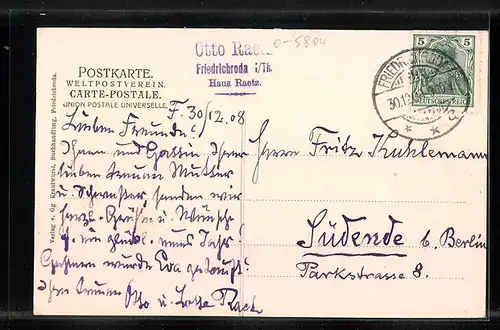 Otto Raetz
Friedrichroda i/Th.
Haus Raetz.
0-5804
POSTKARTE.
WELTPOSTVEREIN.
CARTE-POSTALE.
UNION POSTALE UNIVERSELLE.
5 5
DEUTSCHES REICH
FRIEDRICHRODA
30.12
F. 30/12.08
Lieben Freunde!
Ihnen und Gattin, Ihrer
lieben treuen Mutter
u. Schwester, senden wir
herzl. Grüße u. Wünsche
z. ein glückl. neues Jahr!
Gestern wurde Eva getauft!
Ihre treuen Otto u. Lotte Raetz
Herrn Fritz Kuhlemann
Südende b. Berlin
Parkstrasse 8.
Verlag v. Gg Krautwurst, Buchhandlung, Friedrichroda.